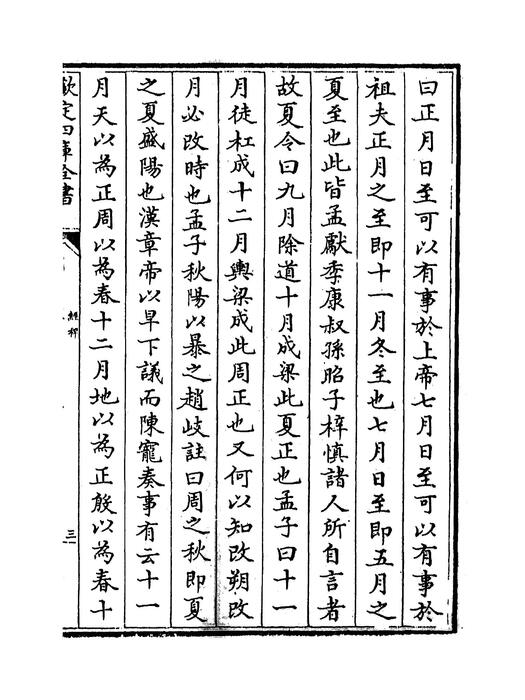 曰正月日至可以有事於上帝七月日至可以有事於
祖夫正月之至即十一月冬至也七月日至即五月之
夏至也此皆孟獻季康叔孫昭子梓慎諸人所自言者
故夏令曰九月除道十月成梁此夏正也孟子曰十一
月徒杠成十二月輿梁成此周正也又何以知改朔改
月必改時也孟子秋陽以暴之趙岐註曰周之秋即夏
之夏盛陽也漢章帝以旱下議而陳寵奏事有云十一
月天以為正周以為春十二月地以為正殷以為春十
欽定四庫全書
經稗
三